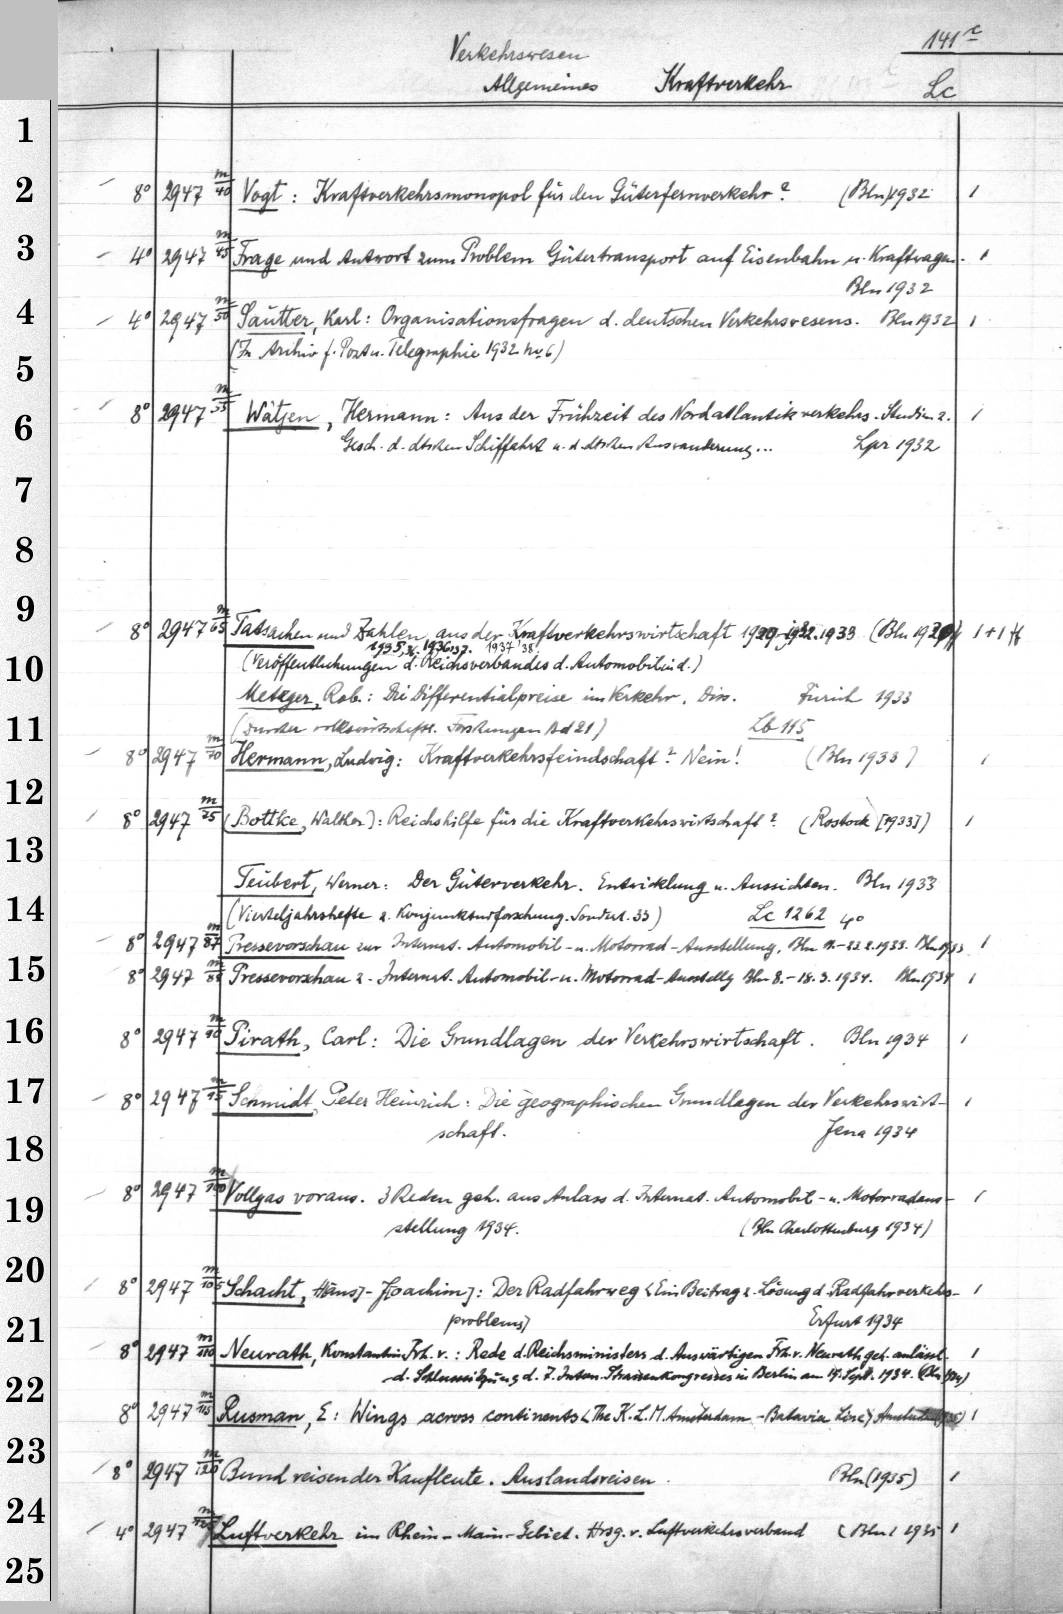 141c
Verkehrswesen
Allgemeines Kraftverkehr Lc
1
2 8° 2947 m/40 Vogt: Kraftverkehrsmonopol für den Güterfernverkehr? (Bln) 1932 1
3 4° 2947 m/45 Frage und Antwort zum Problem Gütertransport auf Eisenbahn u. Kraftwagen. 1
Bln 1932
4 4° 2947 m/50 Sautter, Karl: Organisationsfragen d. deutschen Verkehrswesens. Bln 1932 1
(In Archiv f. Post u. Telegraphie 1932 No 6)
5
6 8° 2947 m/55 Wätjen, Hermann: Aus der Frühzeit des Nordatlantikverkehrs. Studien z. 1
Gesch. d. dtschen Schiffahrt u. d. dtschen Auswanderung... Lpz 1932
7
8
9
8° 2947 m/65 Tatsachen und Zahlen aus der Kraftverkehrswirtschaft 1933 (Bln 1 + 1
1935, 36. 1936/37. 1937/38.
10 (Veröffentlichungen d. Reichsverbandes d. Automobilind.)
Metzger, Rob.: Die Differentialpreise im Verkehr. Diss. Zürich 1933
11 (Zürcher volkswirtschaftl. Forschungen Bd 21) Lb 115
8° 2947 m/70 Hermann, Ludwig: Kraftverkehrsfeindschaft? Nein! (Bln 1933) 1
12
8° 2947 m/75 (Bottke, Walther): Reichshilfe für die Kraftverkehrswirtschaft? (Rostock [1933]) 1
13
Teubert, Werner: Der Güterverkehr. Entwicklung u. Aussichten. Bln 1933
14 (Vierteljahrshefte z. Konjunkturforschung. Sonderh. 33) Lc 1262 4°
8° 2947 m/87 Pressevorschau zur Internat. Automobil- u. Motorrad-Ausstellung, Bln 11.-23.2.1933. Bln 1933 1
15 8° 2947 m/88 Pressevorschau z. Internat. Automobil- u. Motorrad-Ausstellg Bln 8.-18.3.1934. Bln 1934 1
16 8° 2947 m/90 Pirath, Carl: Die Grundlagen der Verkehrswirtschaft. Bln 1934 1
17 8° 2947 m/95 Schmidt, Peter Heinrich: Die geographischen Grundlagen der Verkehrswirt- 1
schaft. Jena 1934
18
19 8° 2947 m/100 Vollgas voraus. 3 Reden geh. aus Anlass d. Internat. Automobil- u. Motorradaus- 1
stellung 1934. (Bln Charlottenburg 1934)
20 8° 2947 m/105 Schacht, H[ans]-J[oachim]: Der Radfahrweg <Ein Beitrag z. Lösung d. Radfahrverkehrs- 1
problems> Erfurt 1934
21 8° 2947 m/110 Neurath, Konstantin Frh. v.: Rede d. Reichsministers d. Auswärtigen Frh. v. Neurath geh. anlässl.
22 d. Schlussitzung d. 7. Intern. Strassenkongresses in Berlin am 19. Sept. 1934. (Bln 1934)
8° 2947 m/115 Rusman, E: Wings across continents <The K.L.M. Amsterdam-Batavia Line> 1
23 8° 2947 m/120 Bund reisender Kaufleute. Auslandsreisen. Bln (1935) 1
24 4° 2947 m/125 Luftverkehr im Rhein-Main-Gebiet. Hrsg. v. Luftverkehrsverband (Bln) 1935 1
25